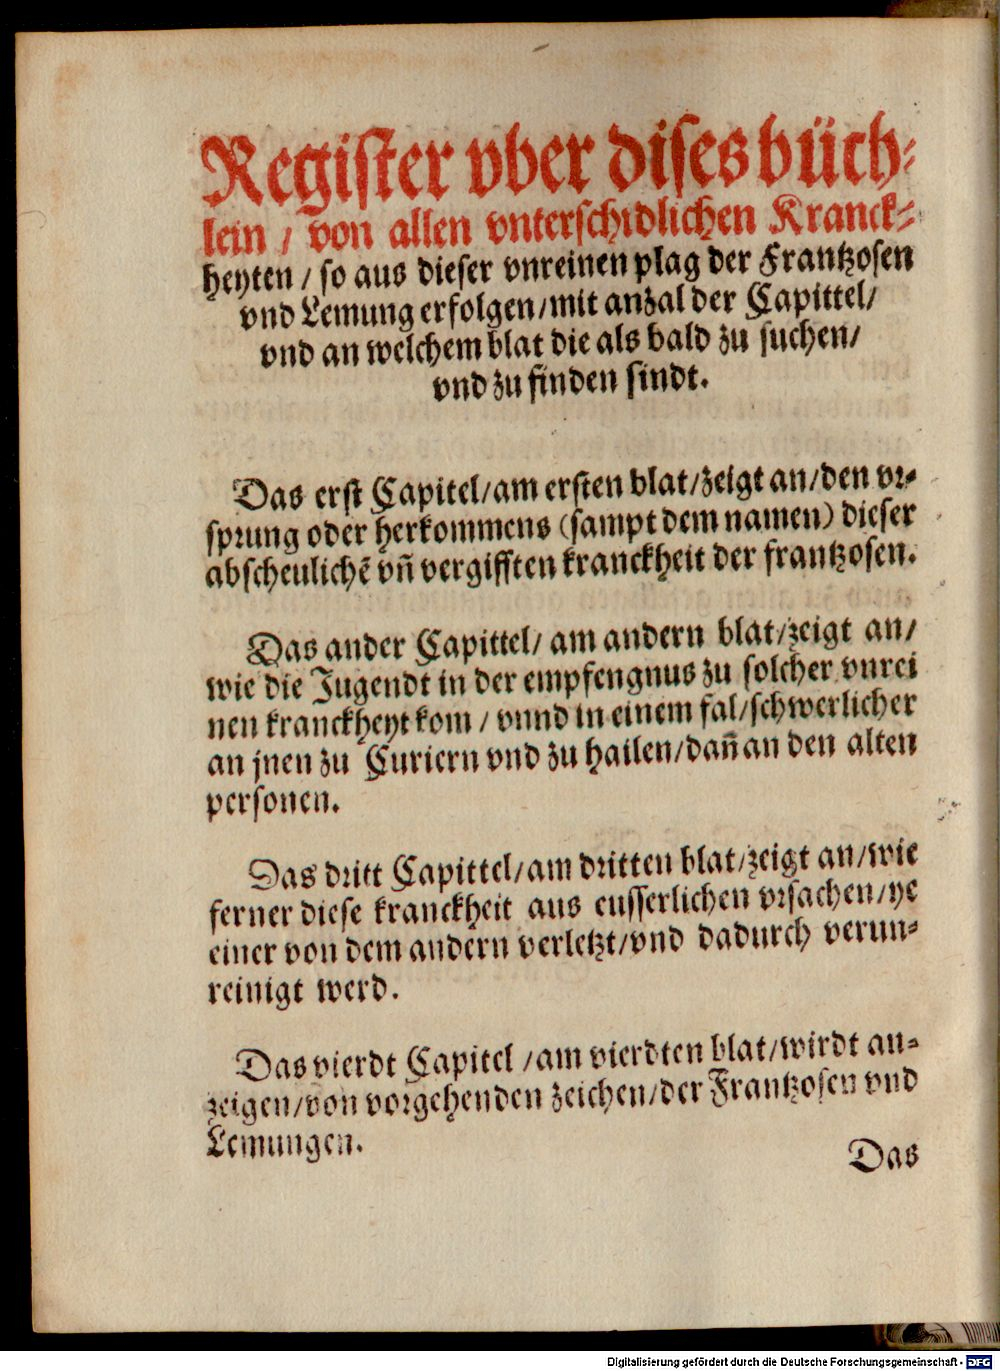 Register vber dises büch-
lein / von allen vnterschidlichen Kranck-
heyten / so aus dieser vnreinen plag der Frantzosen
vnd Lemung erfolgen/mit anzal der Capittel/
vnd an welchem blat die als bald zu suchen/
vnd zu finden sindt.
Das erst Capitel/am ersten blat/zeigt an/den vr-
sprung oder herkommens (sampt dem namen) dieser
abscheulichẽ vñ vergifften kranckheit der frantzosen.
Das ander Capittel/ am andern blat/zeigt an/
wie die Jugendt in der empfengnus zu solcher vnrei
nen kranckheyt kom / vnnd in einem fal/schwerlicher
an jnen zu Curiern vnd zu hailen/dañ an den alten
personen.
Das dritt Capittel/am dritten blat/zeigt an/wie
ferner diese kranckheit aus eusserlichen vrsachen/ye
einer von dem andern verletzt/vnd dadurch verun-
reinigt werd.
Das vierdt Capitel /am vierdten blat/wirdt an-
zeigen/von vorgehenden zeichen/der Frantzosen vnd
Lemungen.
Das
Digitalisierung gefördert durch die Deutsche Forschungsgemeinschaft - DFG